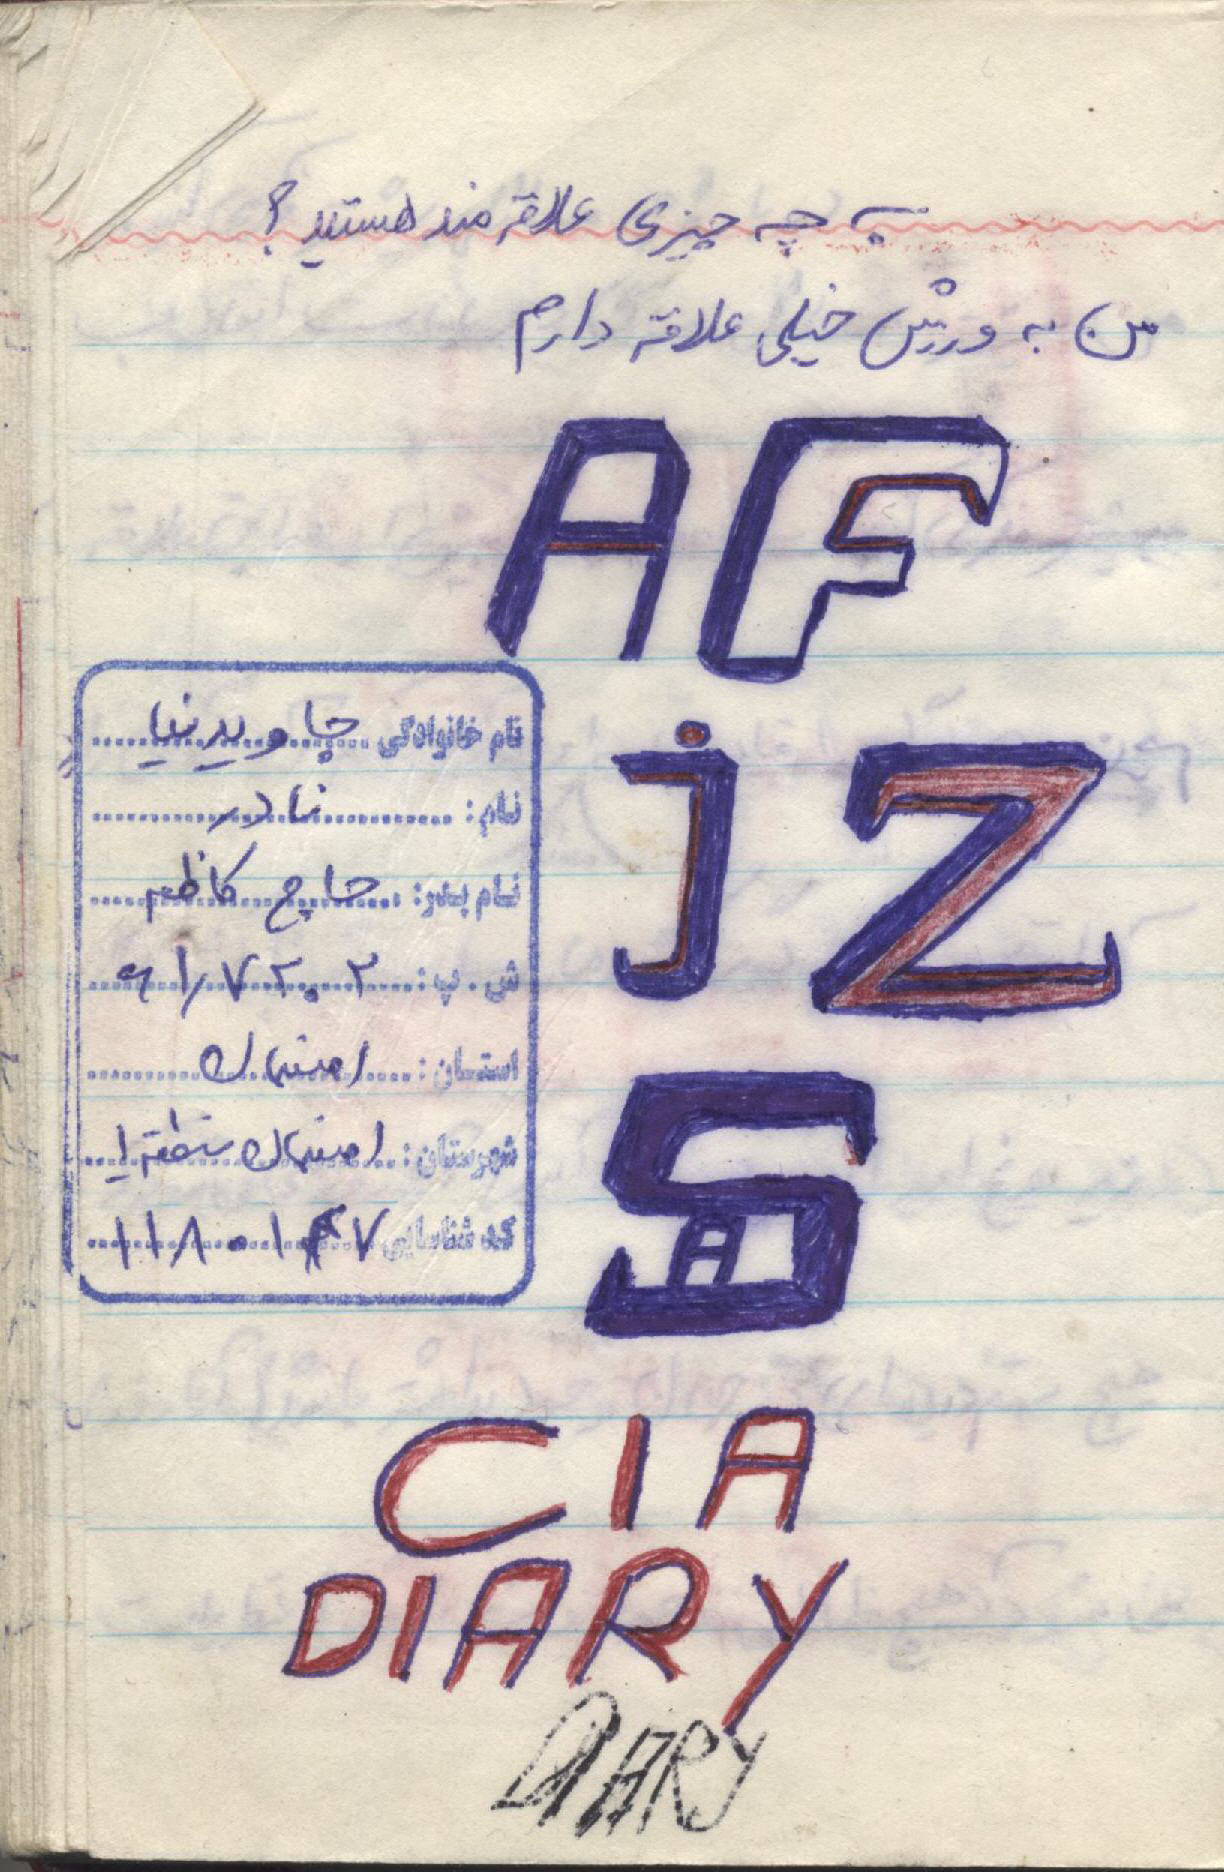 به چه چیزی علاقه مند هستید؟
من به ورزش خیلی علاقه دارم
AF
نام خانوادگی جاویدنیا
نام: نادر
jZ
نام پدر: حاج کاظم
ش. پ:
استان: اصفهان
S
شهرستان: اصفهان منطقه ۱
A
کد شناسایی
CIA
DIARY
DIARY